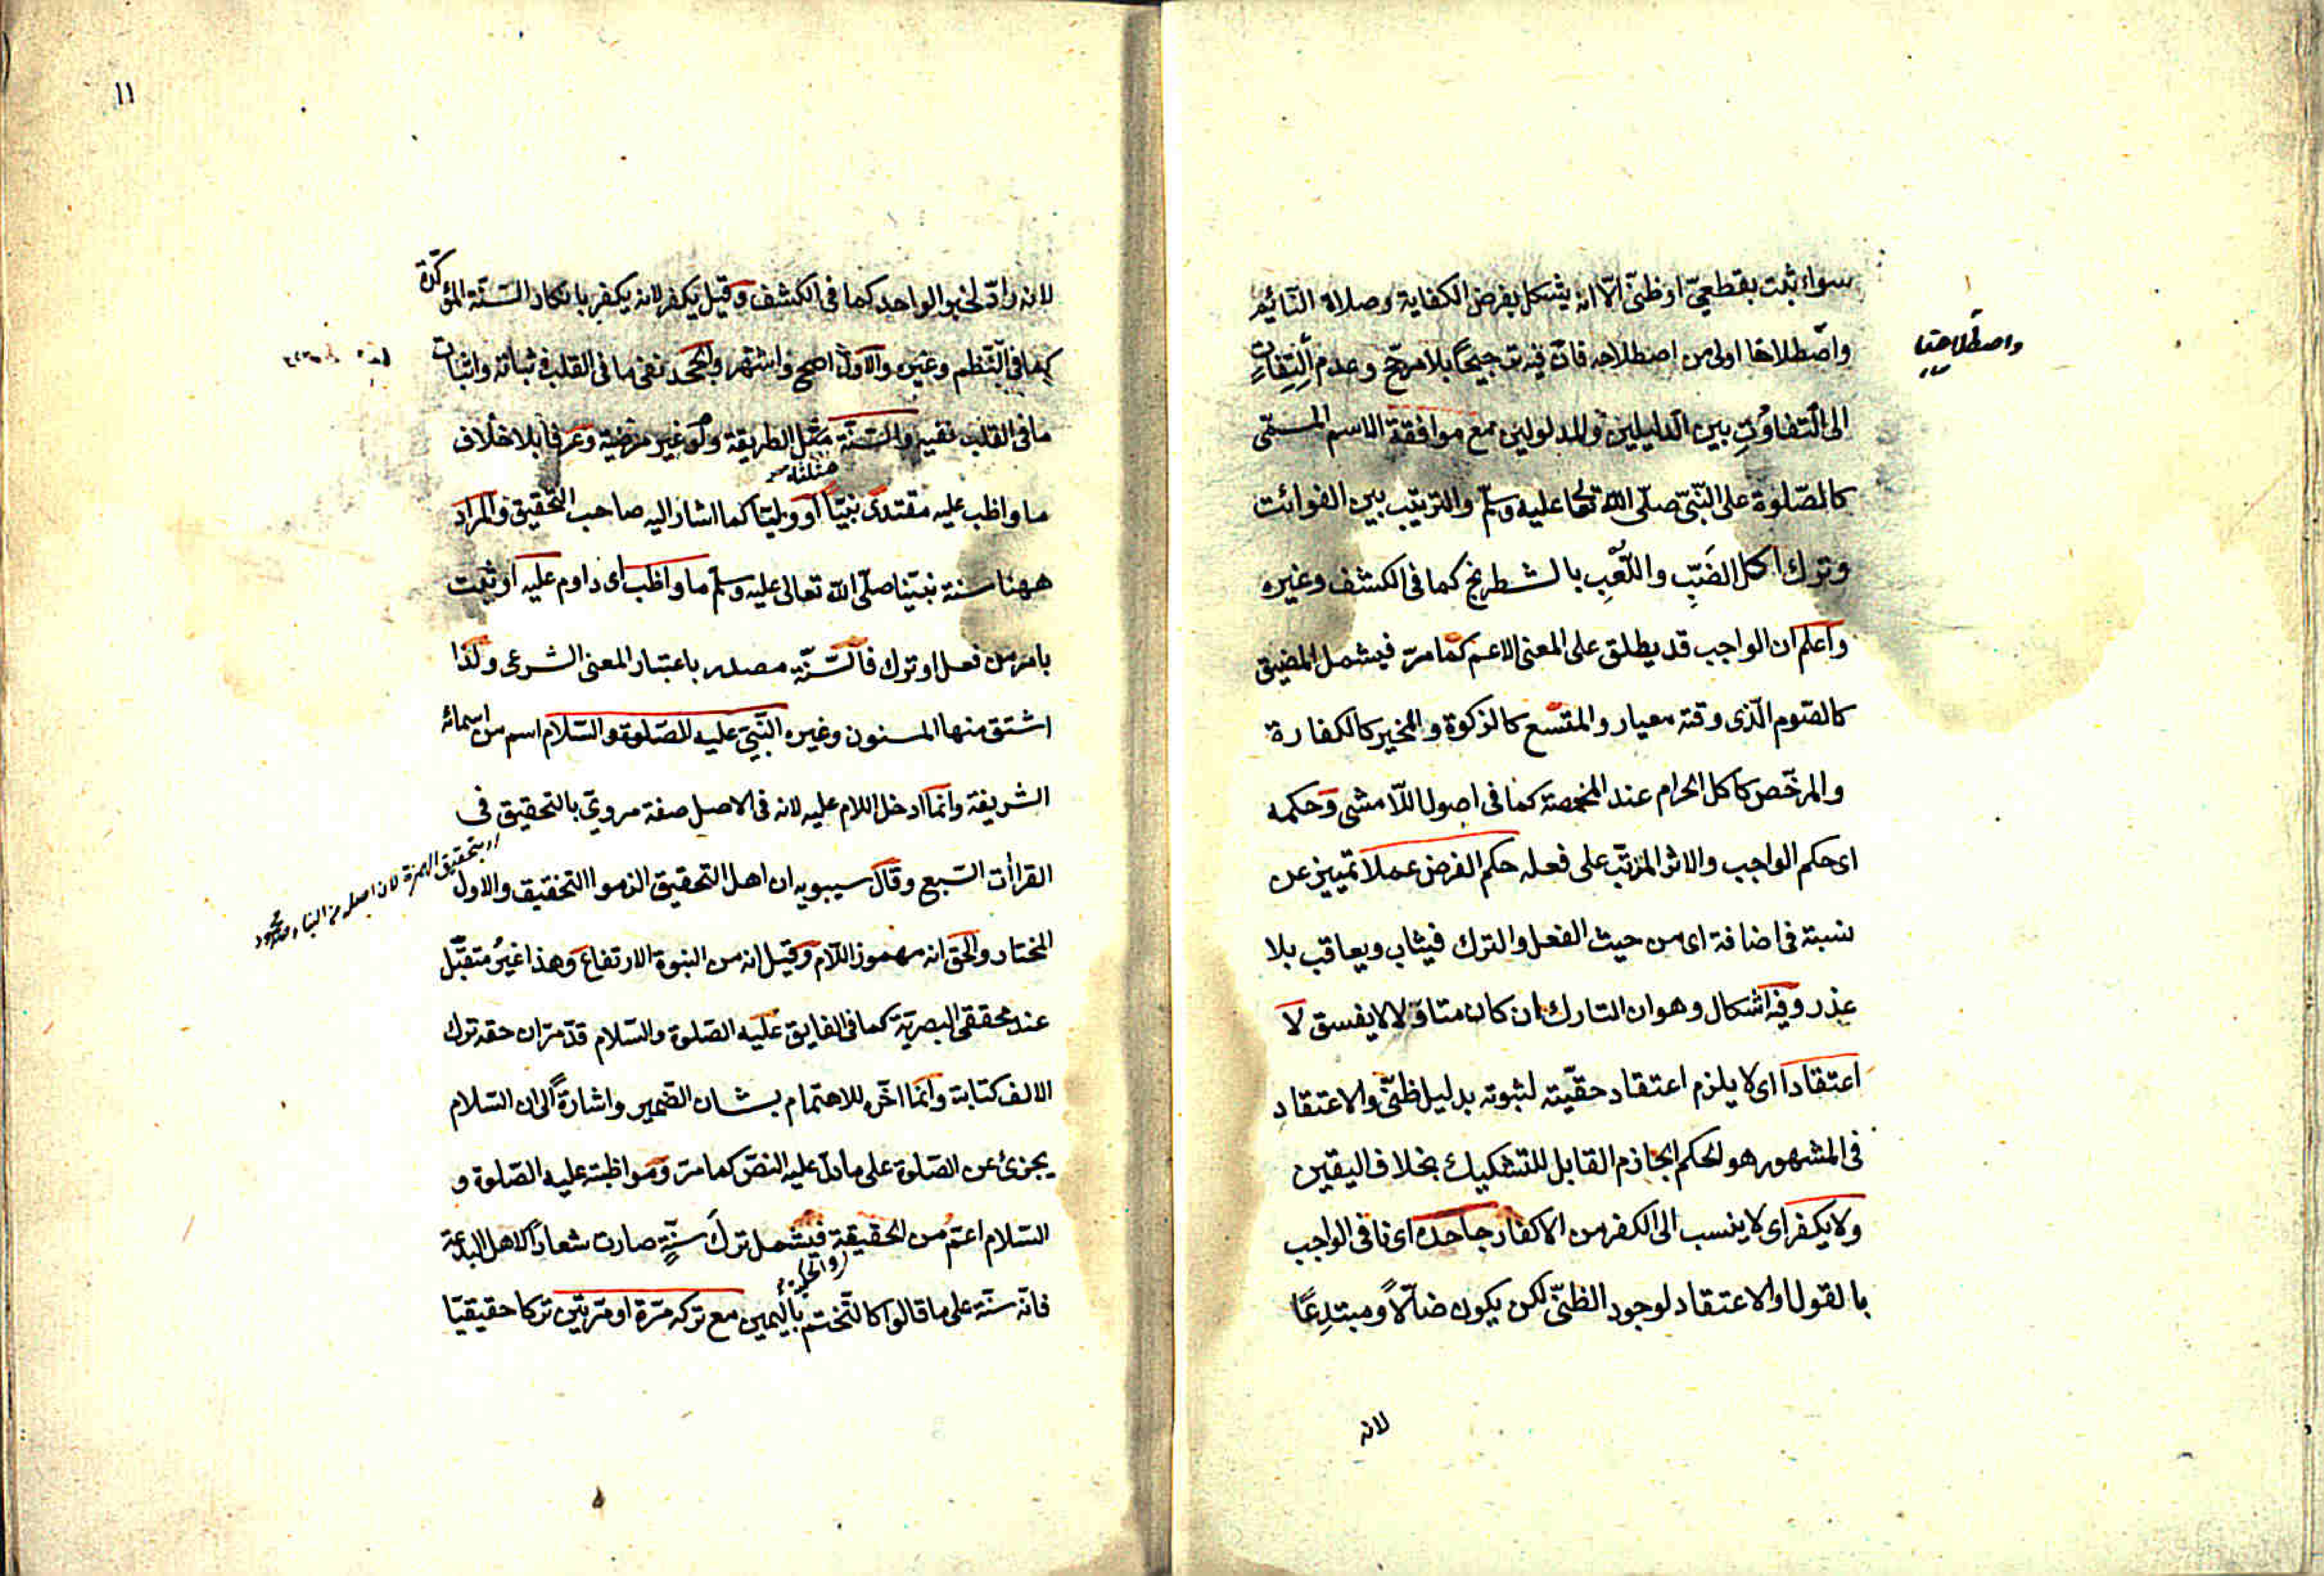 سواء ثبت بقطعىّ او ظنىّ الّا انه يشكل بفرض الكفاية وصلاة النّائم
واصطلاحنا اولى من اصطلاحه فانّ فيه ترجيحًا بلا مرجّح وعدم اِلْتِفَاتٍ
واصطلاحنا
الى التّفاوُتِ بين الدليلين والمدلولين مع موافقة الاسم المسمّى
كالصّلوة على النّبىّ صلّى اللّه تعالى عليه وسلّم والترتيب بين الفوائت
وترك اكل الضَبِّ واللَّعِبِ بالشطرنج كما فى الكشف وغيره
واعلم ان الواجب قد يطلق على المعنى الاعم كما مرّ فيشمل المضيق
كالصّوم الّذى وقته معيار والمتّسع كالزكوة والمخير كالكفارة
والمرخّص كاكل الحرام عند المخمصة كما فى اصول اللّامشى وحكمه
اى حكم الواجب والاثر المترتّب على فعله حكم الفرض عملا تمييز عن
نسبة فى اضافة اى من حيث الفعل والترك فيثاب ويعاقب بلا
عذر وفيه اشكال وهو ان التارك ان كان متاوّلا لا يفسق لا
اعتقادا اى لا يلزم اعتقاد حقّيته لثبوته بدليل ظنّى والاعتقاد
فى المشهور هو الحكم الجازم القابل للتشكيك بخلاف اليقين
ولا يكفر اى لا ينسب الى الكفر من الاكفار جاحده اى نافى الواجب
بالقول او الاعتقاد لوجود الظنّى لكن يكون ضالّاً ومبتدِعًا
لانه
١١
لانه رادّ لخبر الواحد كما فى الكشف وقيل يكفر لانه يكفر بانكار السّنّة المؤكّدة
كما فى النّظم وغيره والاوّل اصح واشتهر والجحد نفى ما فى القلب ثباته واثبات
ما فى القلب نفيه والسّنّة مثل الطريقة ولو غير مرضية وعرفا بلا خلاف
ما واظب عليه مقتدى نبيّا او وليّا كما اشار اليه صاحب التّحقيق والمراد
ههنا سنة نبيّنا صلّى اللّه تعالى عليه وسلّم ما واظب اى داوم عليه او ثبت
بامر من فعل او ترك فالسّنّة مصدر باعتبار المعنى الشرعى ولذا
اشتق منها المسنون وغيره النّبىّ عليه الصّلوة والسّلام اسم من اسمائه
الشريفة وانّما ادخل اللام عليه لانه فى الاصل صفة مروىّ بالتحقيق فى
القراأت السّبع وقال سيبويه ان اهل التحقيق الزموا التخفيف والاول
اى بتحقيق الهمزة لان اصله من النباء
المختار والحق انه مهموز اللّام وقيل انه من النبوة الارتفاع وهذا غيرُ متقبّل
عند محققى البصريّة كما فى الفايق عليه الصّلوة والسّلام قد مرّ ان حقه ترك
الالف كتابة وانّما اخّر للاهتمام بشان الضّمير واشارةً الى ان السّلام
يجزئ عن الصّلوة على ما دلّ عليه النصّ كما مرّ ومواظبته عليه الصّلوة و
السّلام اعمّ من الحقيقة فيشمل تركَ سنّةٍ صارت شعارًا لاهل البدعة
فانّه سنّة على ما قالوا كالتّختم باليمين مع تركه مرّة او مرّتين تركا حقيقيّا